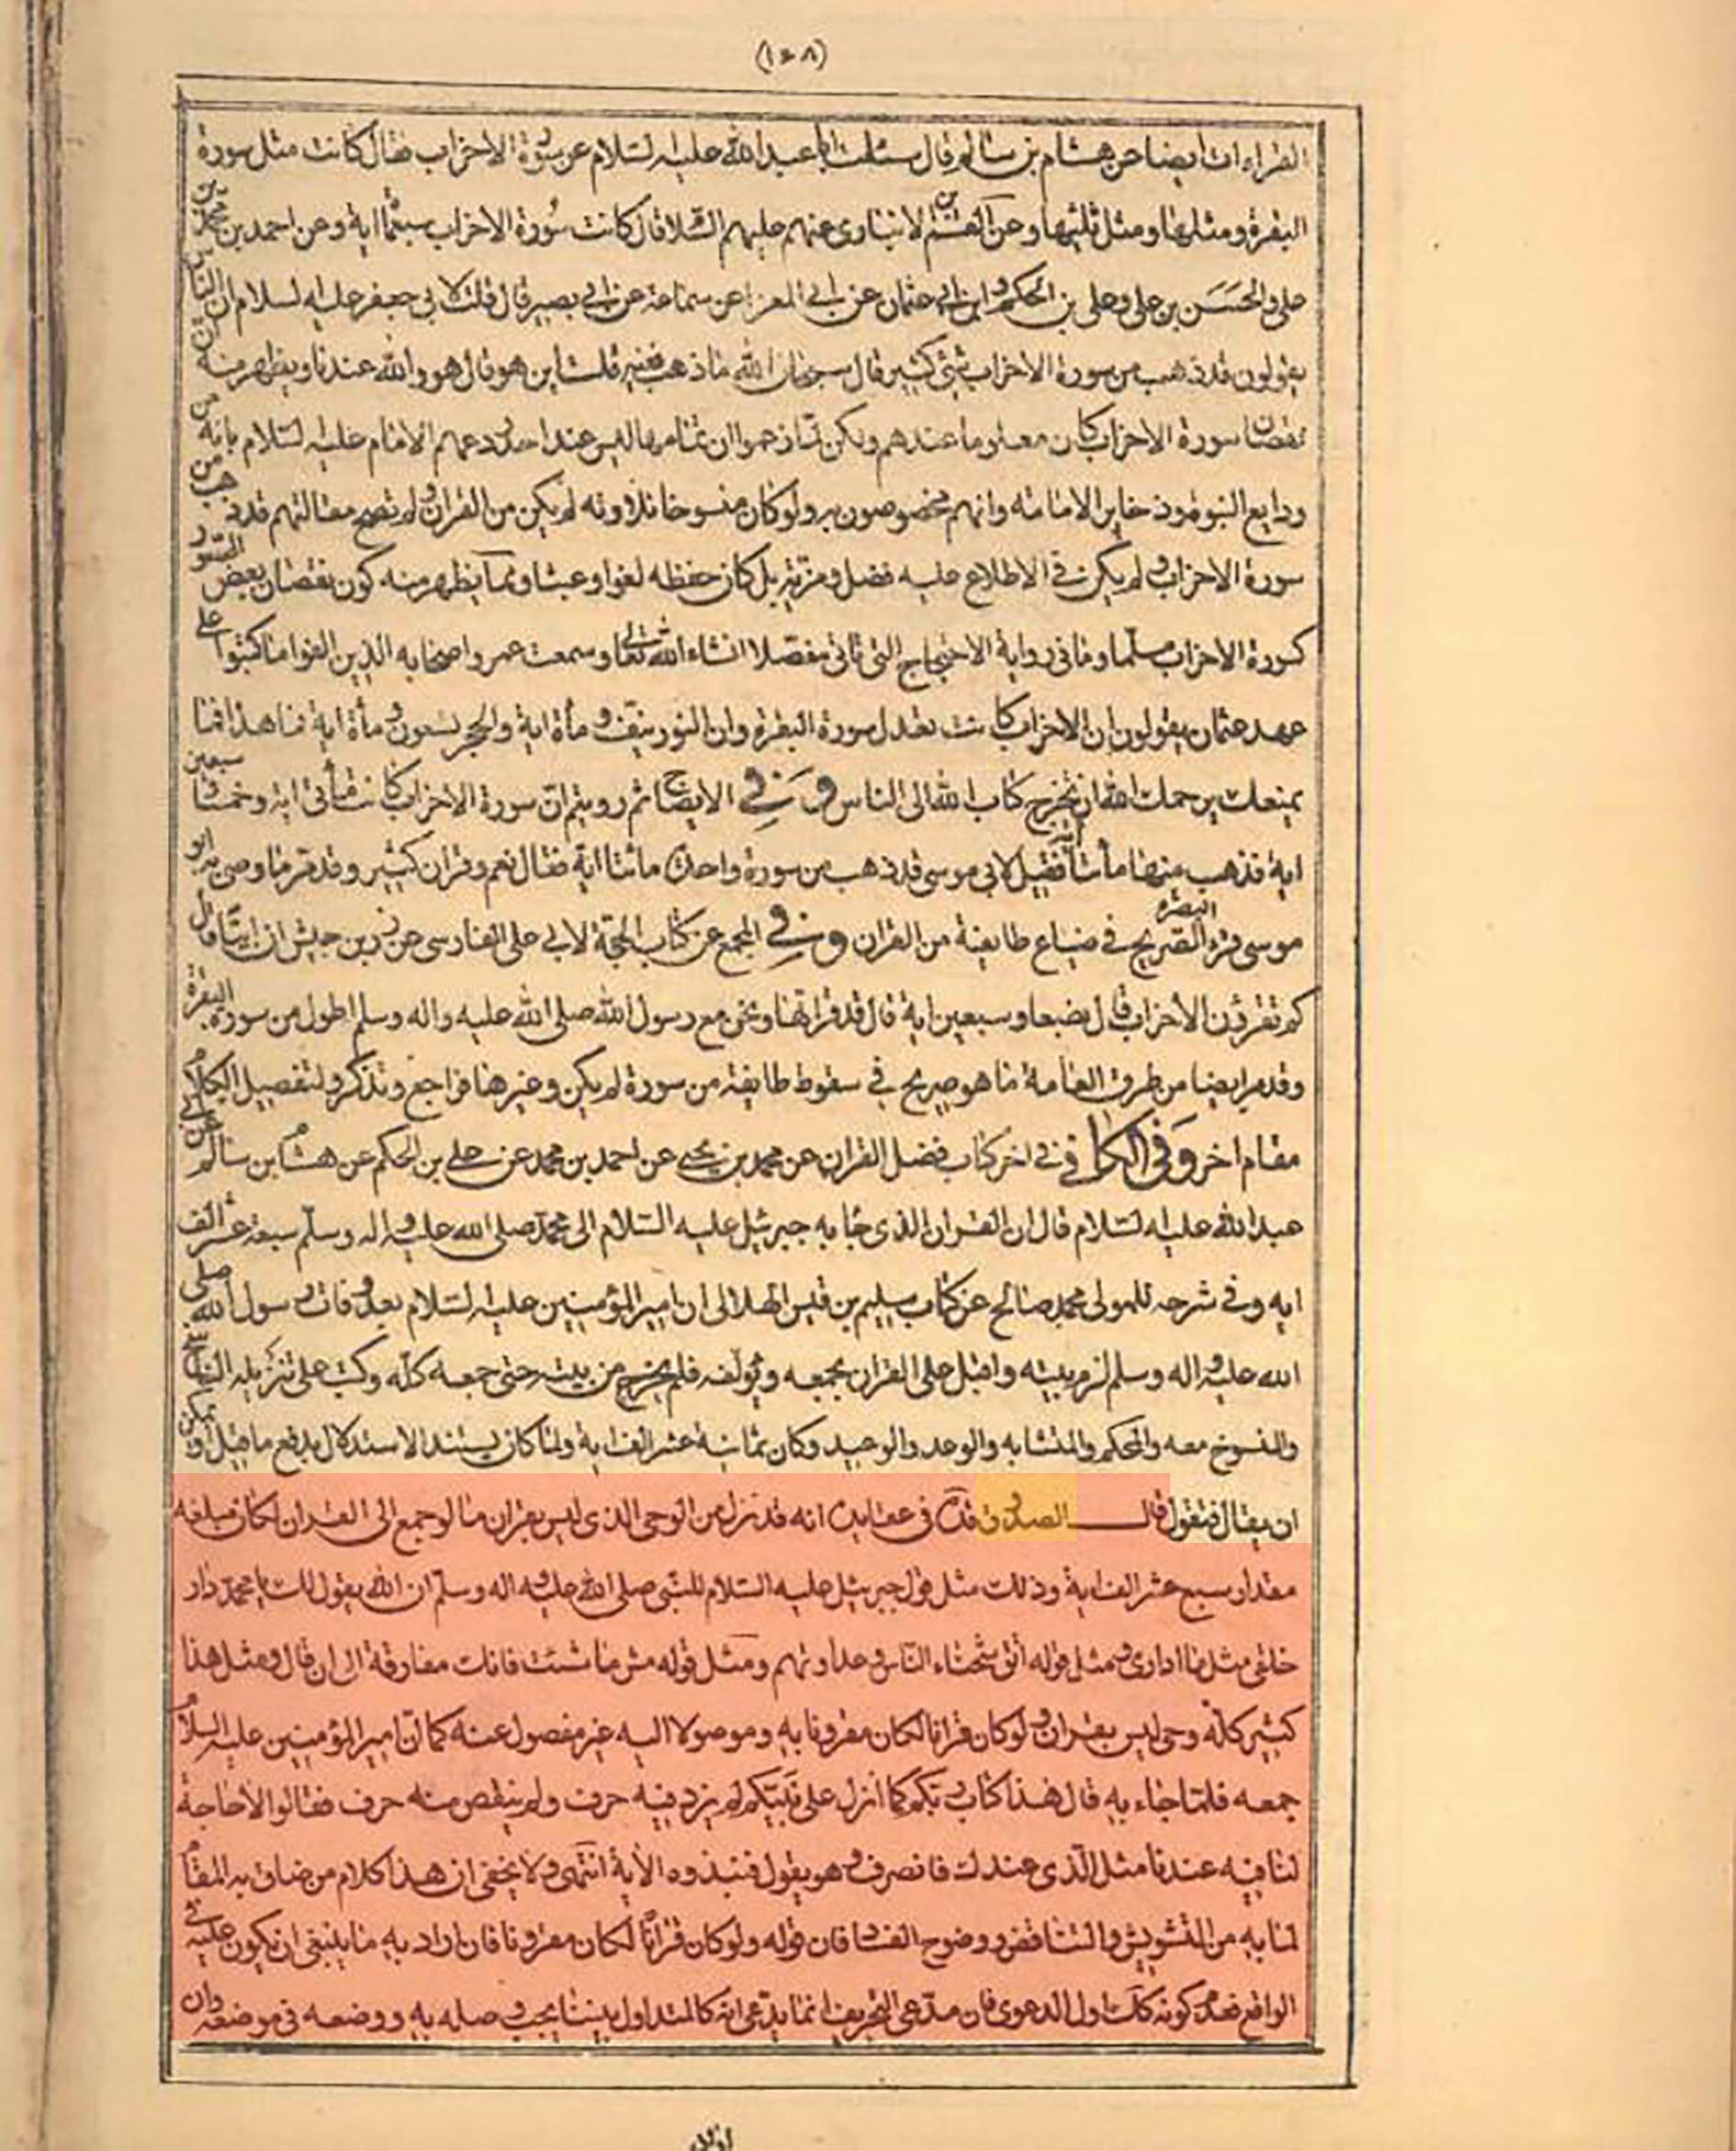 (١٠٨)
القراءات ايضا عن هشام بن سالم قال سئلت ابا عبد الله عليه لسلام عن سورة الاحزاب فقال كانت مثل سورة
البقرة ومثلها ومثل ثلثيها وعن الانباری عنهم عليهم السلا قال كانت سورة الاحزاب سبعمأ اية وعن احمد بن محمد بن
علی والحسن بن علی وعلی بن الحكم و ابن ابي عثمان عن ابي المعزا عن سماعة عن ابي بصير قال قلت لابي جعفر عليه لسلام ان الناس
يقولون قد ذهب من سورة الاحزاب شئ كثير قال سبحان الله ما ذهب قلت اين هو قال هو والله عندنا ويظهر منه ان
نقصان سورة الاحزاب كان معلوما عندهم ولكن زعموا ان تمامها ليس عند احد فردعهم الامام عليه لسلام بانه من
ودايع النبوة وذخاير الامامة وانهم مخصوصون به ولو كان منسوخا تلاوته لم يكن من القران ولم تصح مقالتهم من
سورة الاحزاب و لم يكن فی الاطلاع عليه فضل ومزية بل كان حفظه لغوا وعبثا ومما يظهر منه كون نقصان بعض السور
كسورة الاحزاب مسلما وما فی رواية الاحتجاج التی تاتی مفصلا انشاء الله تعا وسمعت عمر واصحابه الذين الفوا ما كتبوا علی
عهد عثمان يقولون ان الاحزاب كانت تعدل سورة البقرة وان النور نيف و مأة اية والحجر تسعون و مأة اية فما هذا فما
يمنعك يرحمك الله ان تخرج كتاب الله الی الناس و فی الايضاح ثم رويتم ان سورة الاحزاب كانت مأتی اية وخمسا سبعين
اية فذهب منها مأتا اية فقيل لابی موسی قد ذهب من سورة واحدة مائتا اية فقال نعم وقران كثير وقد مر ما وصی به ابو
موسی قراء البصرة الصريح فی ضياع طايفة من القران و فی المجمع عن كتاب الحجة لابی علی الفارسی عن زر بن حبيش ان ابيا قال
كم تقرؤن الاحزاب قال بضعا وسبعين اية قال قد قراتها ونحن مع رسول الله صلی الله عليه واله وسلم اطول من سورة البقرة
وقد مر ايضا من طرق العامة ما هو صريح فی سقوط طايفة من سورة لم يكن وغيرها فراجع وتذكر ولتفصيل الكلام
مقام اخر وفی الكافی فی اخر كتاب فضل القران عن محمد بن يحيی عن احمد بن محمد عن علی بن الحكم عن هشام بن سالم عن ابی
عبد الله عليه لسلام قال ان القران الذی جا به جبرئيل عليه السلام الی محمد صلی الله عليه واله وسلم سبعة عشر الف
اية وفی شرحه للمولی محمد صالح عن كتاب سليم بن قيس الهلالی ان امير المؤمنين عليه لسلام بعد وفات رسول الله صلی
الله عليه واله وسلم لزم بيته واقبل علی القران يجمعه ويؤلفه فلم يخرج من بيته حتی جمعه كله وكتب علی تنزيله الناسخ
والمنسوخ معه والمحكم والمتشابه والوعد والوعيد وكان ثمانية عشر الف اية ولما كان يستند الاستدلال بدفع ما قيل او يمكن
ان يقال فنقول قال الصدوق قده فی عقايده انه قد نزل من الوحی الذی ليس بقران ما لو جمع الی القران لكان مبلغه
مقدار سبع عشر الف اية وذلك مثل قول جبرئيل عليه السلام للنبی صلی الله عليه اله وسلم ان الله يقول لك يا محمد دار
خلقی مثل ما اداری ومثل قوله اتق شحناء الناس وعداوتهم ومثل قوله عش ما شئت فانك مفارقه الی ان قال ومثل هذا
كثير كله وحی ليس بقران و لو كان قرانا لكان مقرونا به وموصولا اليه غير مفصول عنه كما ان امير المؤمنين عليه السلام
جمعه فلما جاء به قال هذا كتاب ربكم كما انزل علی نبيكم لم يزد فيه حرف ولم ينقص منه حرف فقالوا لا حاجة
لنا فيه عندنا مثل الذی عندك فانصرف و هو يقول فنبذوه الاية انتهی ولا يخفی ان هذا كلام من ضاق به المقام
لما به من التشويش والتناقض ووضوح الفساد فان قوله ولو كان قرانا لكان مقرونا فان اراد به ما ينبغی ان يكون عليه فی
الواقع فعدم كونه كك اول الدعوی فان مدعی التحريف انما يدعی انه كالمتداول بيننا يجب وصله به ووضعه فی موضعه وان